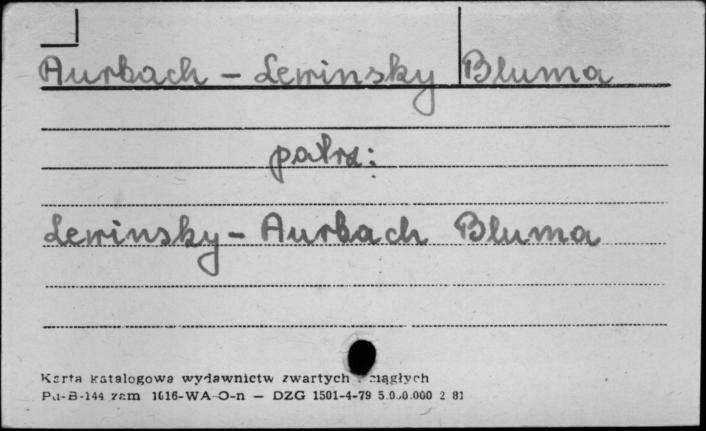 Aurbach - Lewinsky Bluma
patrz:
Lewinsky - Aurbach Bluma
Karta katalogowa wydawnictw zwartych ciągłych
Pu-B-144 zam 1616-WA-O-n — DZG 1501-4-79 2 81